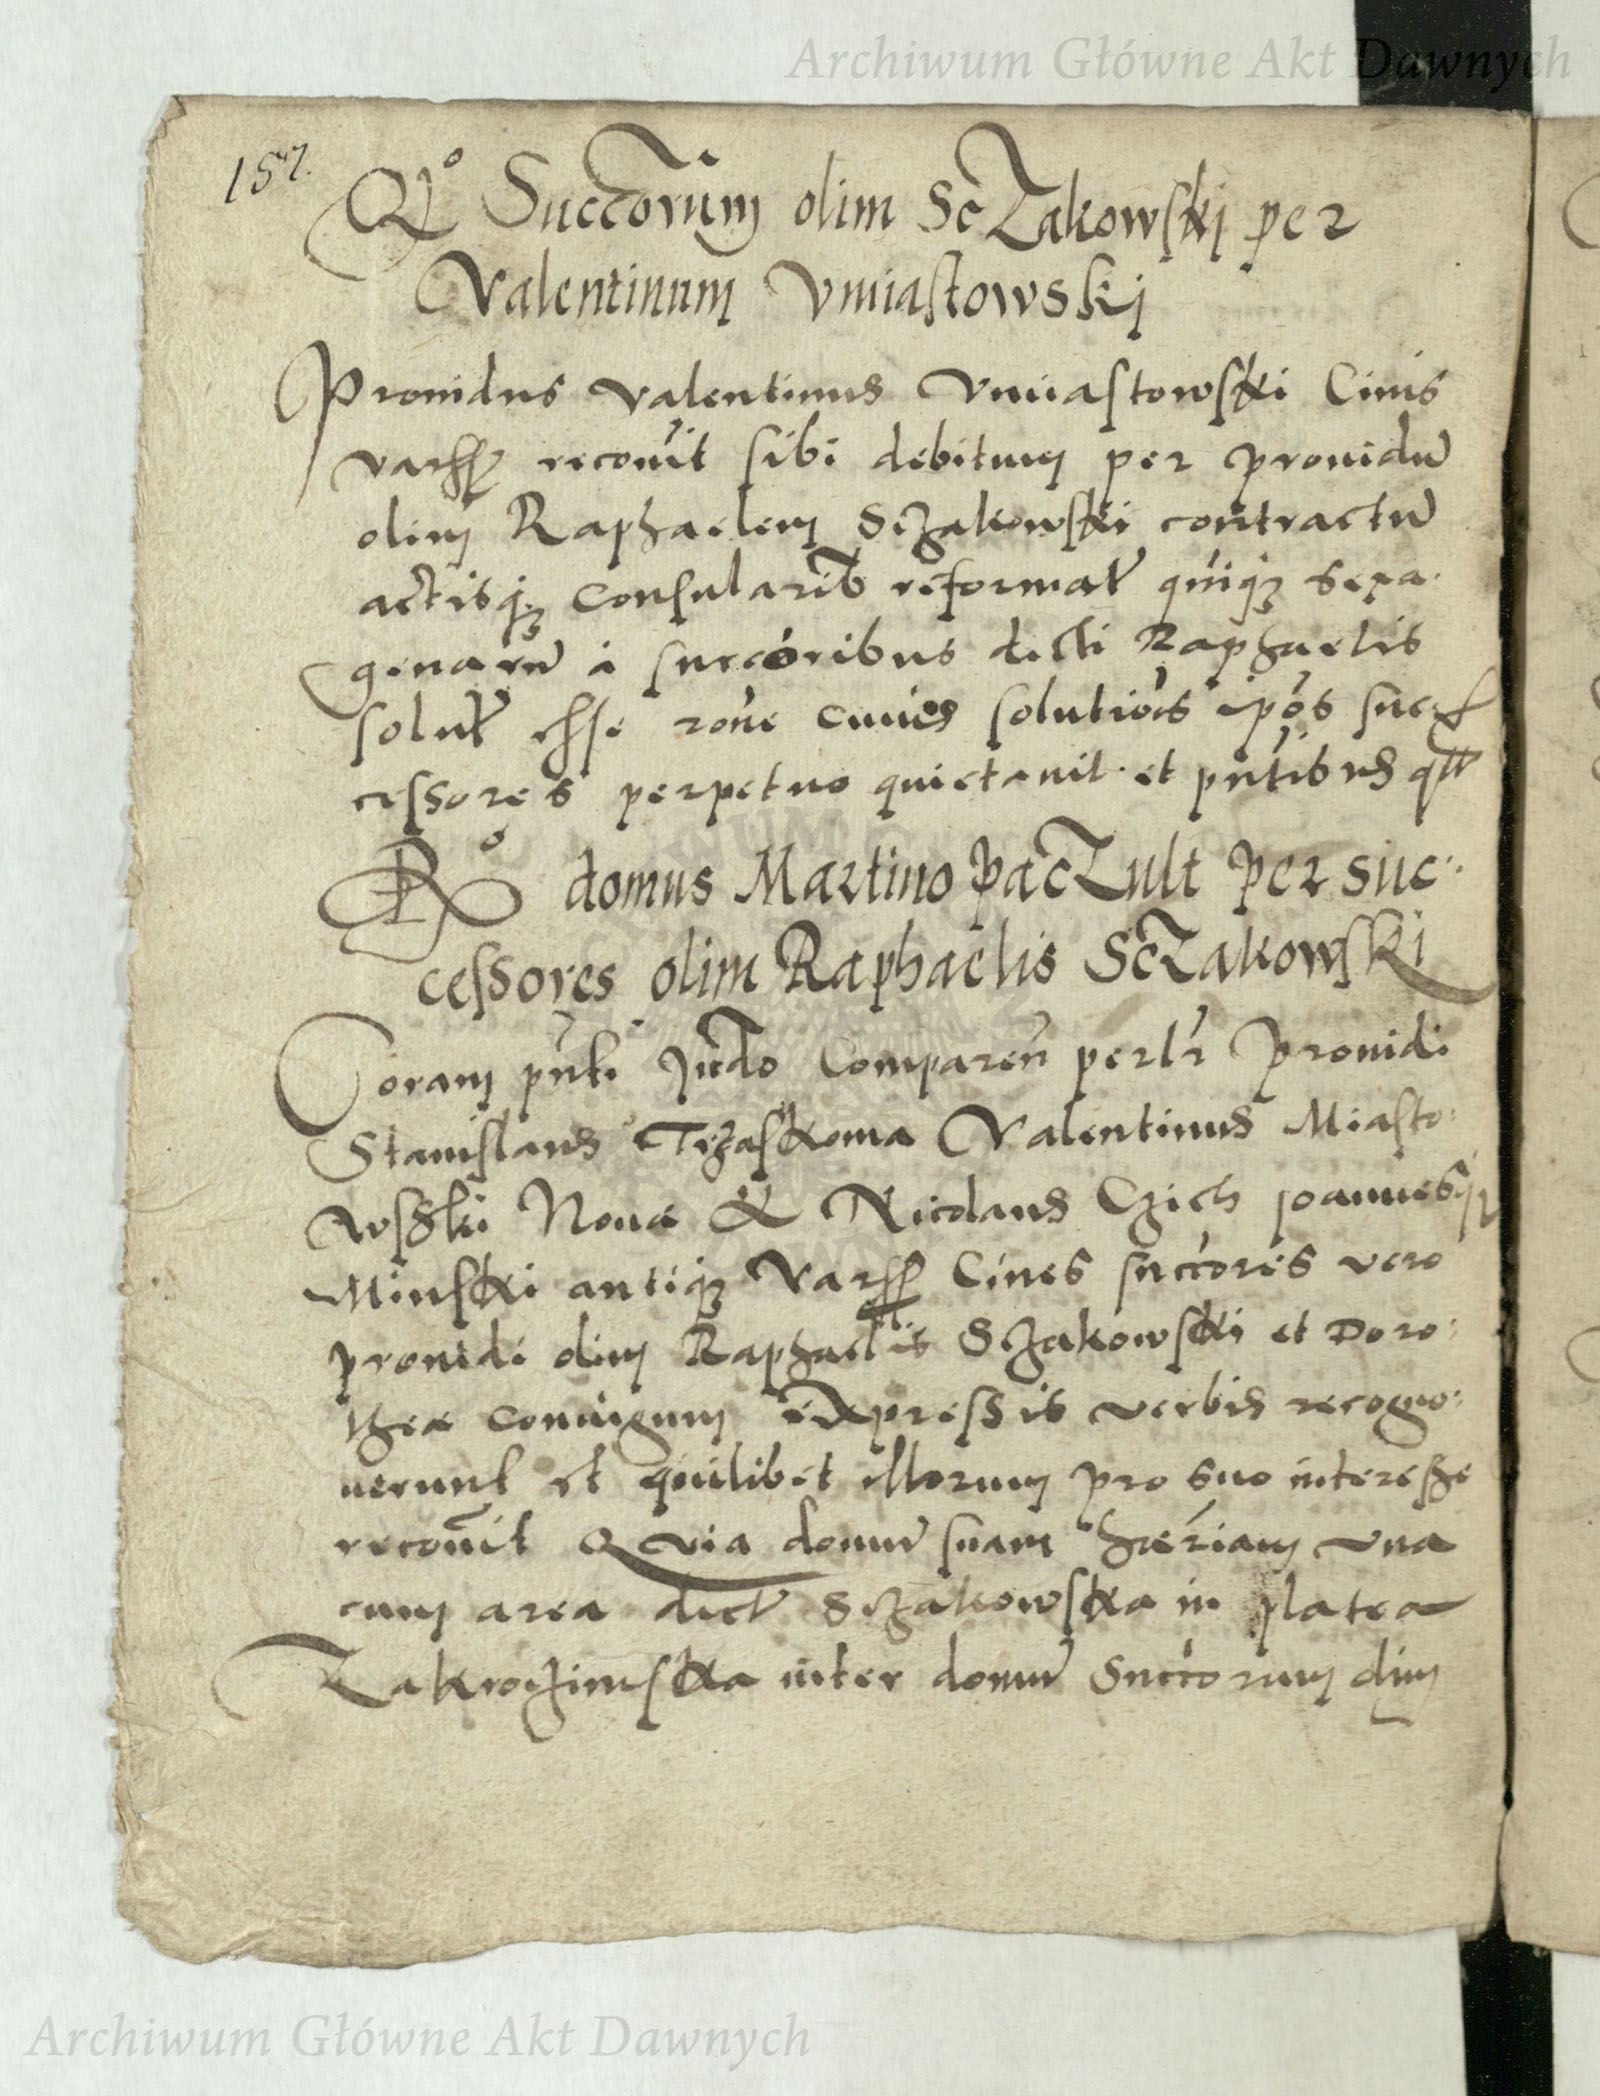 Archiwum Główne Akt Dawnych
157.
Qº Succorum olim Sczakowskj per
Valentinum Vmiastowskj
Prouidus Valentinus Vmiastowski Ciuis
recouit sibi debitum per prouidu
olim Raphaelem Sczakowski contractu
actisqz Consularib reformat sexa
genaru a succoribus dicti Raphaelis
solut esse rone cuius solutiois ipos suc
cessores perpetuo quietauit et pntibus
Rº domus Martino Paczult per suc
cessores olim Raphaelis Sczakowski
Coram pnti Judo Comparen perlr Prouidi
Stanislaus Trzaskoma Valentinus Miasto
wski Noue & Nicolaus Czich Joannesqz
Minski antiqz Vars Ciues succores vero
prouidi olim Raphaelis Sczakowski et Doro
thee coniugum expressis verbis recogno
uerunt et quilibet illorum pro suo interesse
recouit Quia domu suam haeriam vna
cum area dict Sczakowska in platea
Zakroczimska inter domu Succorum olim
Archiwum Główne Akt Dawnych